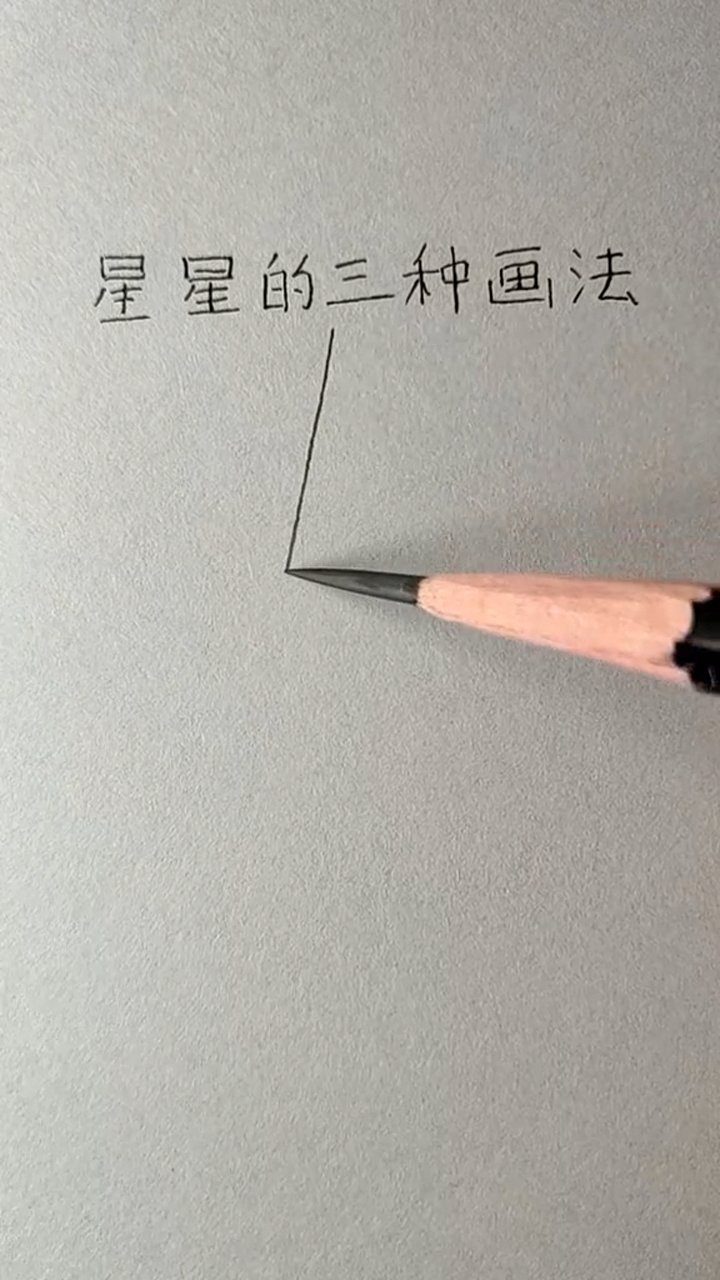 星星的三种画法